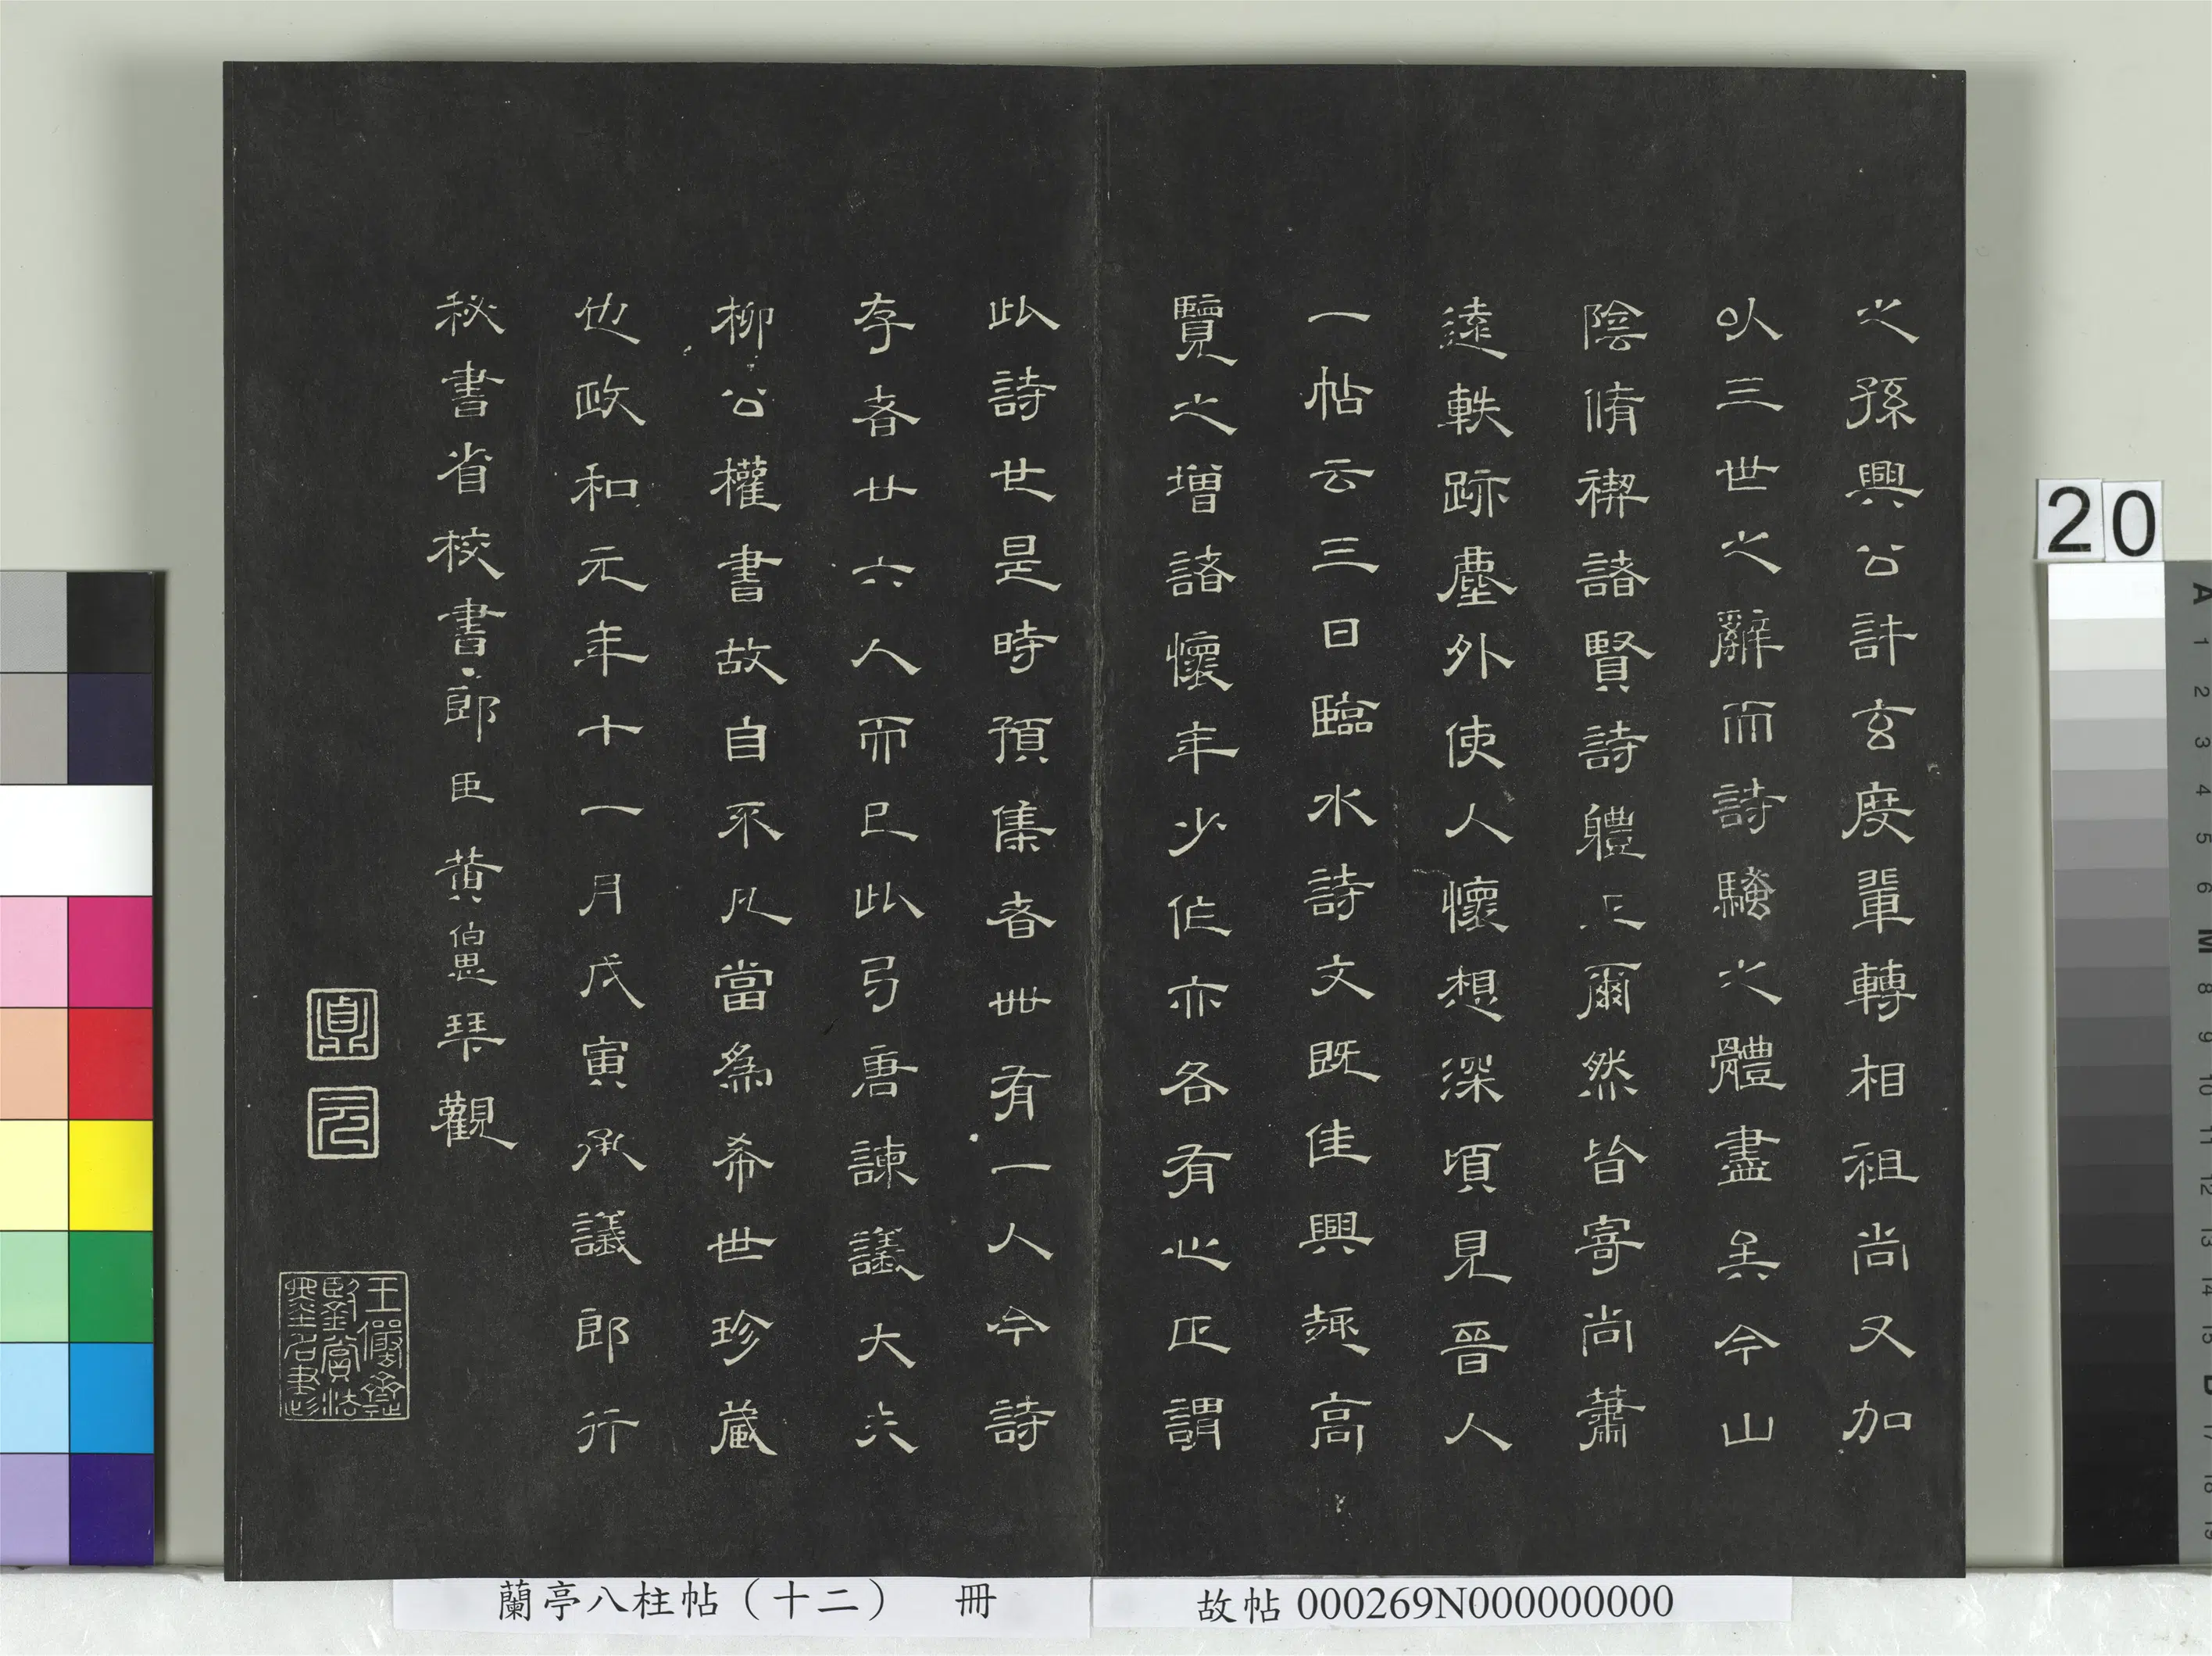 之孫興公許玄度輩轉相祖尚又加
以三世之辭而詩騷之體盡矣今山
陰脩禊諸賢詩體正爾然皆寄尚蕭
遠軼跡塵外使人懷想深頃見晉人
一帖云三日臨水詩文既佳興趣高
覽之增諸懷年少作亦各有心正謂
此詩世是時預集者卌有一人今詩
存者廿六人而已此弓唐諫議大夫
柳公權書故自不凡當為希世珍藏
也政和元年十一月戊寅承議郎行
秘書省校書郎臣黃伯思琴觀
真
元
王儼齋
賞法
名書
20
蘭亭八柱帖（十二） 冊
故帖 000269N000000000
A 1 2 3 4 5 6 M 8 9 10 11 12 13 14 15 17 18 19